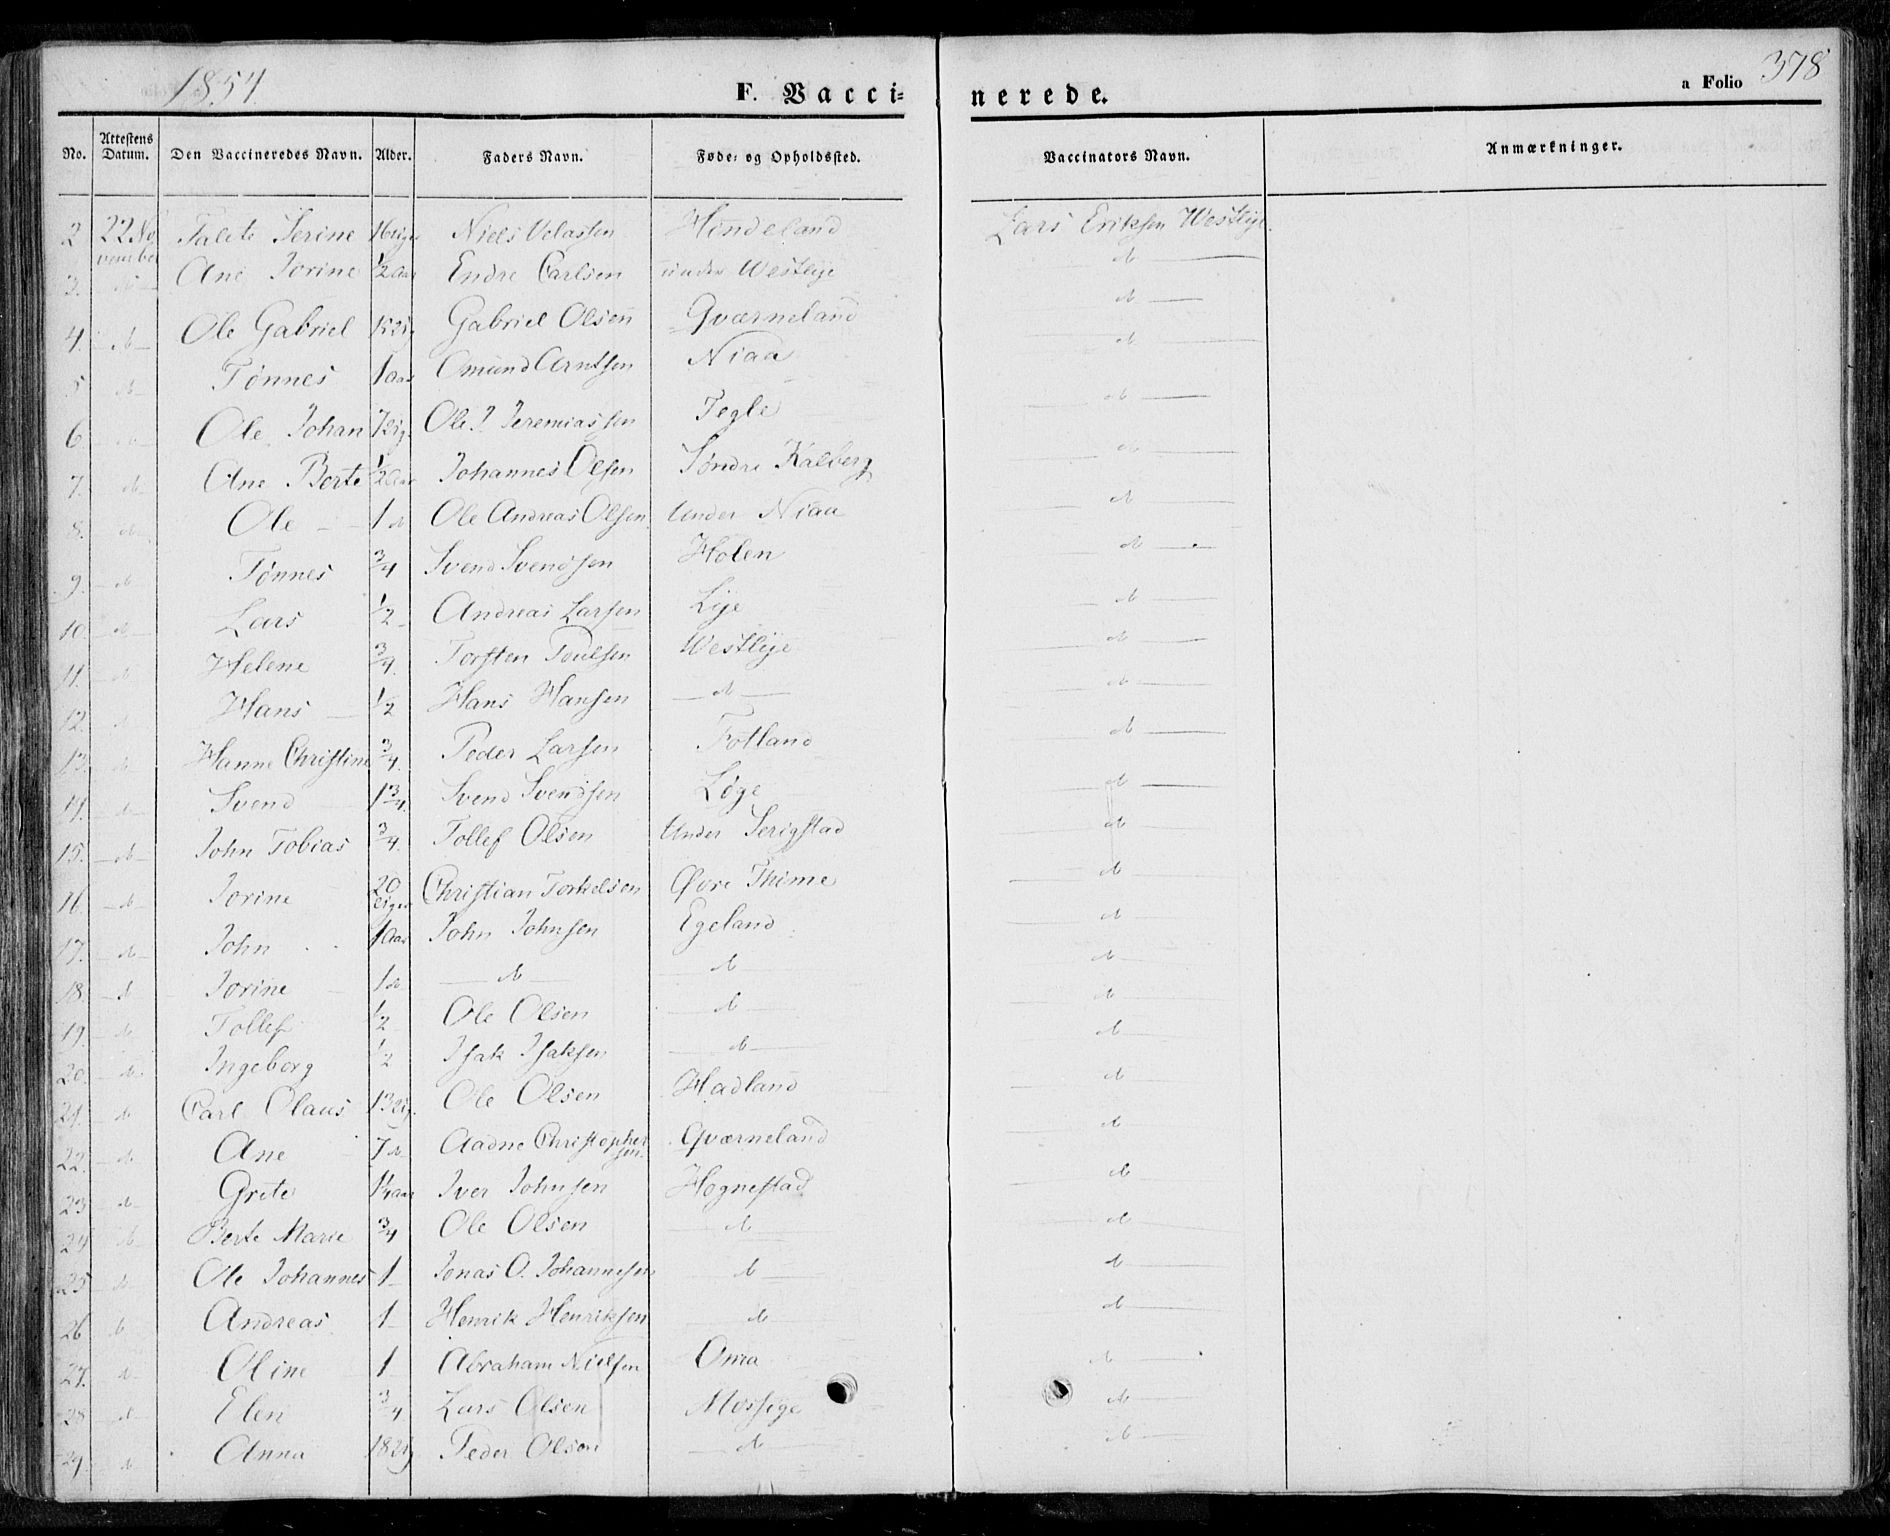 1854
F. Vacci=
nerede.
a Folio 378
No. Attestens Datum. Den Vaccineredes Navn. Alder. Faders Navn. Føde- og Opholdssted. Vaccinators Navn. Anmærkninger.
2 22 No vember Talete Serine 16 uger Niels Velassen Hindeland Lars Eriksen Westlye
3. d Ane Jorine 1/2 Aar Endre Carlsen under Westlye d
4. d Ole Gabriel Gabriel Olsen Qværneland d
5 d Tønnes 1 Aar Omund Arntsen Niaa d
6 d Ole Johan Ole J. Jeremiassen Tegle d
7. d Ane Berte 1/2 Aar Johannes Olsen Søndre Kalberg d
8. d Ole 1 d Ole Andreas Olsen Under Niaa d
9. d Tønnes 3/4 Svend Svendsen Holen d
10. d Lars 1/2 Andreas Larsen Lye d
11. d Helene 3/4. Torsten Poulsen Westlye d
12. d Hans 1/2 Hans Hansen d d
13. d Hanne Christine 3/4. Peder Larsen Fotland d
14. d Svend 1 3/4. Svend Svendsen Løge d
15. d John Tobias 3/4. Tollef Olsen Under Serigstad d
16. d Jorine 20 Uger Christian Torkelsen Øvre Thime d
17. d John 1 Aar John Johnsen Egeland d
18. d Jorine 1 d d d d
19. d Tollef 1/2 Ole Olsen d d
20. d Ingeborg 1/2 Isak Isaksen d d
21. d Carl Olaus 13 Ug. Ole Olsen Hadland d
22. d Ane 7 d Aadne Christopher sen. Qværneland d
23 d Grete 1 1/4 Aar Iver Johnsen Hognestad d
24 d Berte Marie 3/4 Ole Olsen d d
25 d Ole Johannes 1 Jonas O. Johannesen d d
26 d Andreas 1 Henrik Henriksen d d
27. d Oline 1 Abraham Nielsen Oma d
28 d Elen 3/4 Lars Olsen Mossige d
29. d Anna 18 Ug Peder Olsen d d